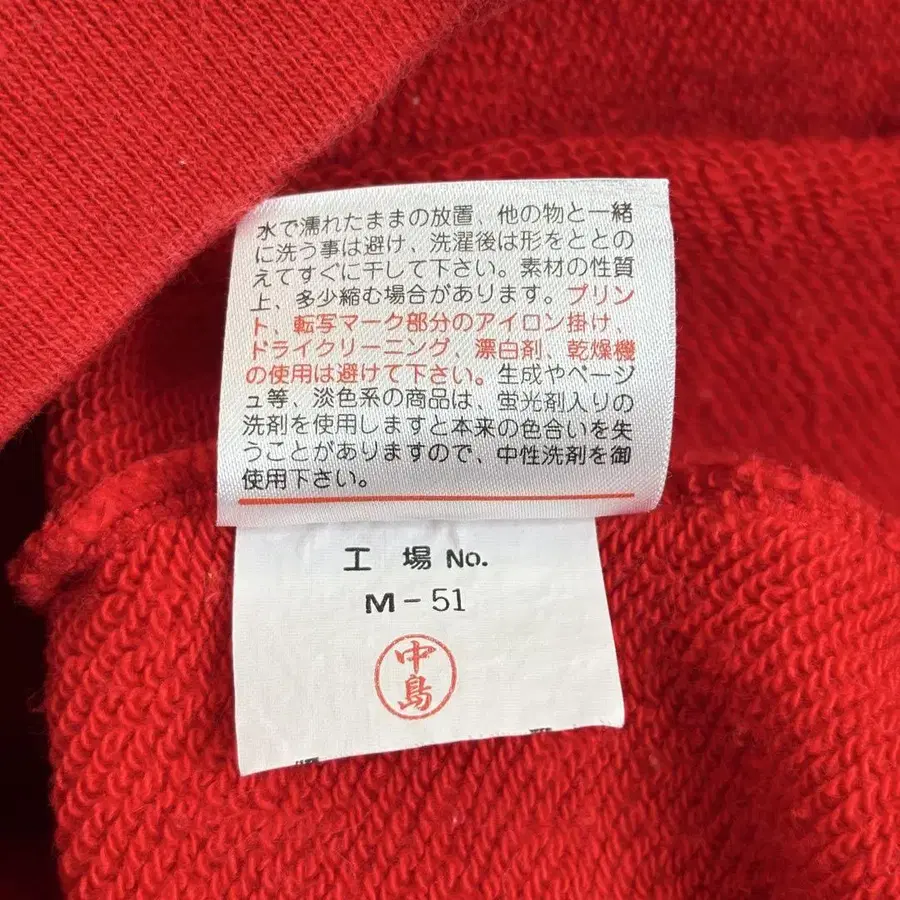 水で濡れたままの放置、他の物と一緒
に洗う事は避け、洗濯後は形をととの
えてすぐに干して下さい。素材の性質
上、多少縮む場合があります。プリン
ト、転写マーク部分のアイロン掛け、
ドライクリーニング、漂白剤、乾燥機
の使用は避けて下さい。生成やベージ
ュ等、淡色系の商品は、蛍光剤入りの
洗剤を使用しますと本来の色合いを失
うことがありますので、中性洗剤を御
使用下さい。
工場 No.
M-51
中島